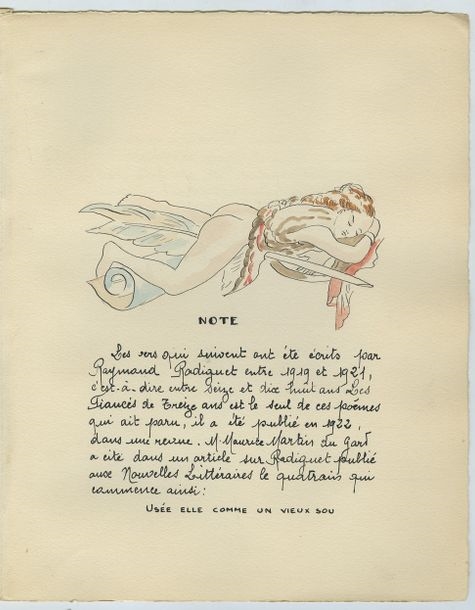 NOTE
Les vers qui suivent ont été écrits par
Raymond Radiguet entre 1919 et 1921,
c'est-à-dire entre Seize et dix huit ans Les
Fiancés de Treize ans est le seul de ces poèmes
qui ait paru, il a été publié en 1922,
dans une revue. M. Maurice Martin du Gard
a cité dans un article sur Radiguet publié
aux Nouvelles Littéraires le quatrain qui
commence ainsi:
USÉE ELLE COMME UN VIEUX SOU